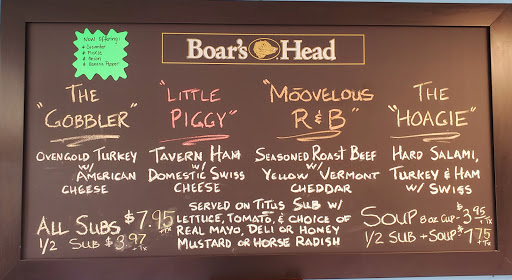 Now Offering:
Cucumber
Pickle
Onion
Banana Pepper
Boar's Head
THE "GOBBLER"
OVENGOLD TURKEY
w/
AMERICAN
CHEESE
"LITTLE
PIGGY"
TAVERN HAM
w/
DOMESTIC SWISS
CHEESE
"MOOVELOUS
R&B"
SEASONED ROAST BEEF
w/
YELLOW VERMONT
CHEDDAR
THE
"HOAGIE"
HARD SALAMI,
TURKEY & HAM
w/ SWISS
ALL SUBS $7.95 + TX
1/2 SUB $3.97 + TX
SERVED ON TITUS SUB w/
LETTUCE, TOMATO, & CHOICE OF
REAL MAYO, DELI OR HONEY
MUSTARD, OR HORSE RADISH
SOUP 8oz CUP - $3.95 + TX
1/2 SUB + SOUP $7.75 + TX